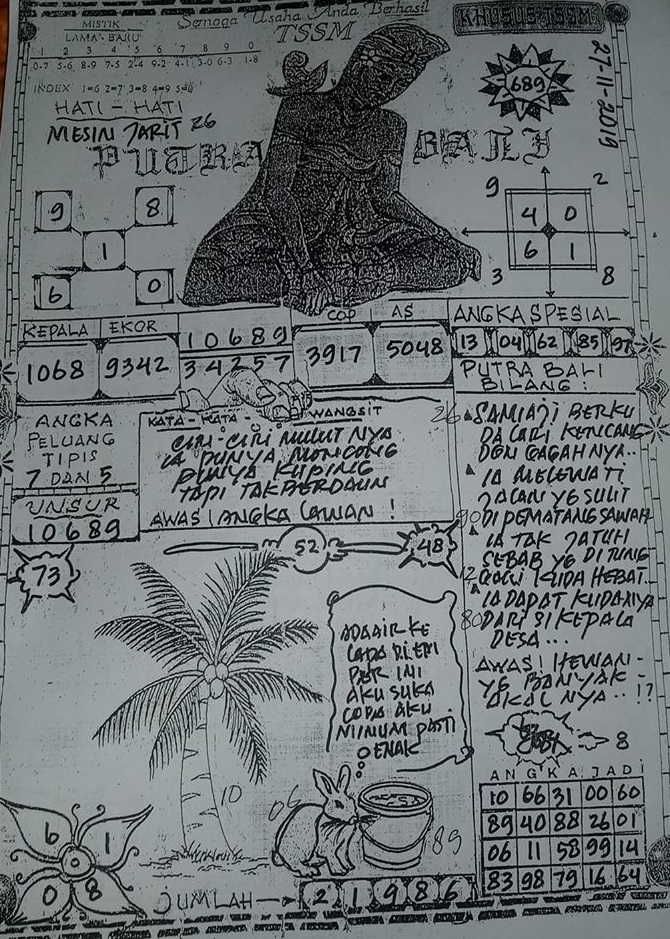 MISTIK
LAMA - BARU
1 2 3 4 5 6 7 8 9 0
0-7 5-6 8-9 7-5 2-4 9-2 4-1 3-0 6-3 1-8
INDEX 1=6 2=7 3=8 4=9 5=0
HATI - HATI
MESIN JARIT 26
Semoga Usaha Anda Berhasil
TSSM
KHUSUS TSSM
27-11-2019
689
PUTRA BALI
9 8
1
6 0
9 2
4 0
6 1
3 8
KEPALA EKOR
1068 9342
10689
34257
COP AS
3917 5048
ANGKA SPESIAL
13 04 62 85 97
PUTRA BALI
BILANG :
ANGKA
PELUANG
TIPIS
7 DAN 5
UNSUR
10689
73
KATA - KATA - WANGSIT
CIRI-CIRI MULUT NYA
IA PUNYA MONCONG
PUNYA KUPING
TAPI TAK BERDAUN
AWAS! ANGKA LAWAN !
52
48
26 SAMIAJI BERKU
DA LARI KENCANG
DGN GAGAHNYA..
IA MELEWATI
JALAN YG SULIT
90 DI PEMATANG SAWAH
IA TAK JATUH
SEBAB YG DITUNG
12 GANGI KUDA HEBAT..
IA DAPAT KUDANYA
80 DARI SI KEPALA
DESA...
AWAS! HEWAN -
YG BANYAK -
AKAL NYA..!?
8
ADA AIR KE
LAPA DI EM
BER INI
AKU SUKA
COBA AKU
MINUM PASTI
ENAK
10
06
89
6 1
0 8
JUMLAH 21986
ANGKA JADI
10 66 31 00 60
89 40 88 26 01
06 11 58 99 14
83 98 79 16 64